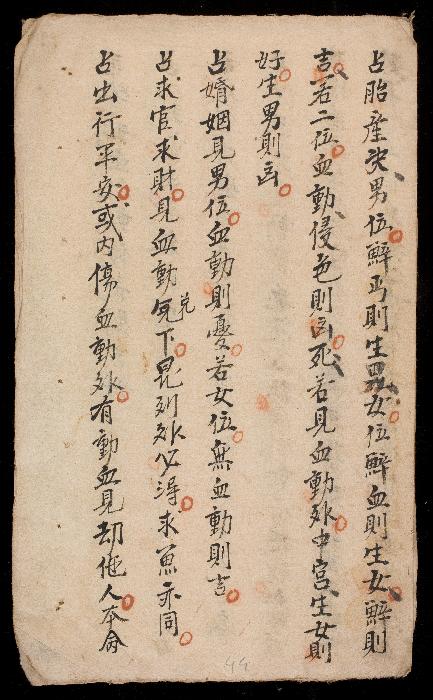 占胎産決男位觧丏則生男女位觧血則生女觧則
吉若二位血動侵色則凶死若見血動外中宫生女則
好生男則凶
占婚姻見男位血動則憂若女位無血動則吉
占求官求財見血動下昆列外必淂求魚亦同
占出行平安或内傷血動外有動血見刧他人本命